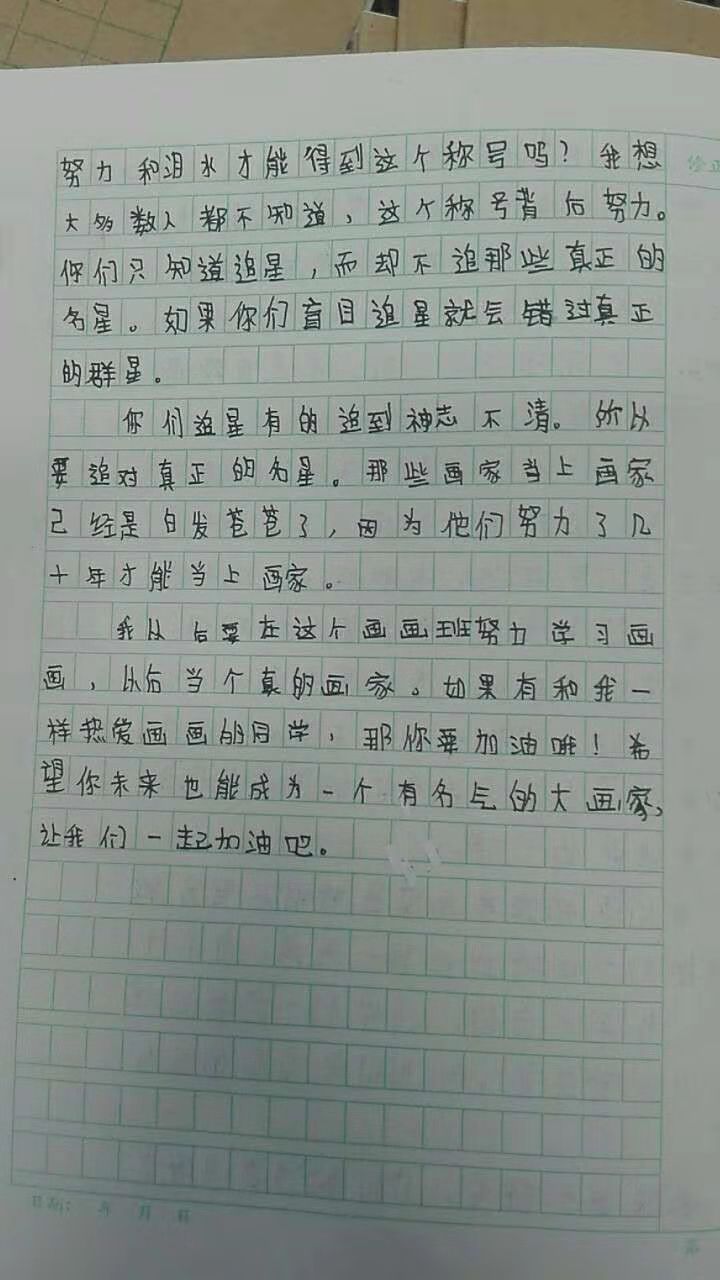 努力和泪水才能得到这个称号吗？我想
大多数人都不知道，这个称号背后努力。
你们只知道追星，而却不追那些真正的
名星。如果你们盲目追星就会错过真正
的群星。
你们追星有的追到神志不清。所以
要追对真正的名星。那些画家当上画家
已经是白发苍苍了，因为他们努力了几
十年才能当上画家。
我以后要在这个画画班努力学习画
画，以后当个真的画家。如果有和我一
样热爱画画的同学，那你要加油哦！希
望你未来也能成为一个有名气的大画家，
让我们一起加油吧。
日期： 年 月 日